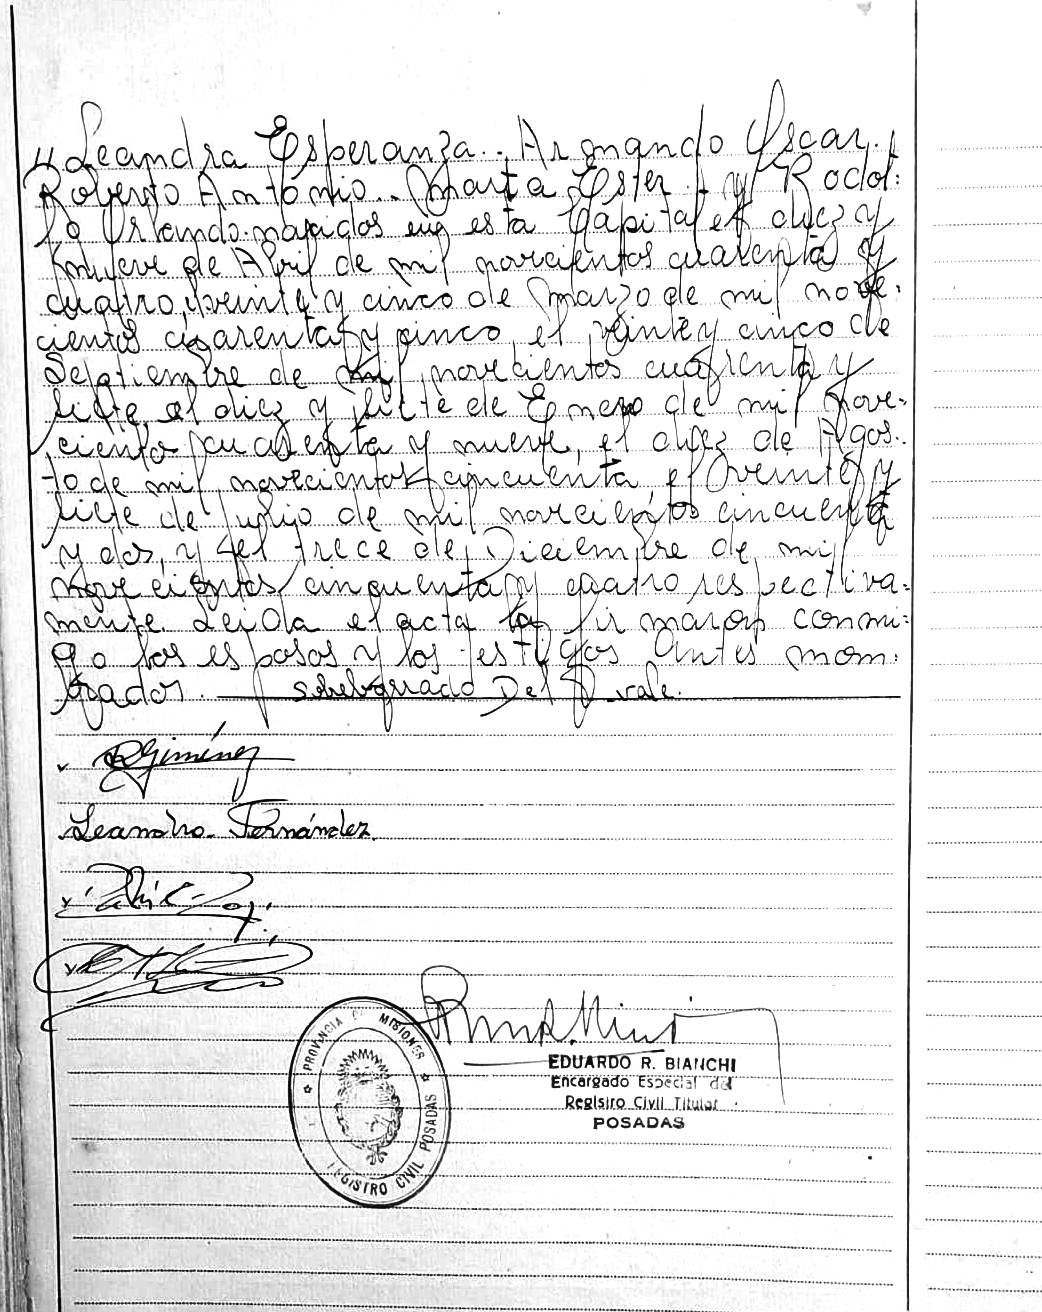 Leandra Esperanza.. Armando Oscar.,
Roberto Antonio.. Marta Ester.. y Rodol:
fo Orlando. nacidos en esta Capital el diez y
nueve de Abril de mil novecientos cuarenta y
cuatro, veinte y cinco de Marzo de mil nove:
cientos cuarenta y cinco, el veinte y cinco de
Septiembre de mil novecientos cuarenta y
siete, el diez y siete de Enero de mil nove-
cientos cuarenta y nueve, el diez de Agos:
to de mil novecientos cincuenta, el veinte y
siete de Julio de mil novecientos cincuenta
y dos, y el trece de Diciembre de mil
novecientos cincuenta y cuatro respectiva=
mente. Leída el acta la firmaron conmi=
go los esposos y los testigos antes nom:
brados. sobreborrado Del vale.
RGiménez
Leandro Fernández
PROVINCIA DE MISIONES
REGISTRO CIVIL POSADAS
EDUARDO R. BIANCHI
Encargado Especial del
Registro Civil Titular
POSADAS